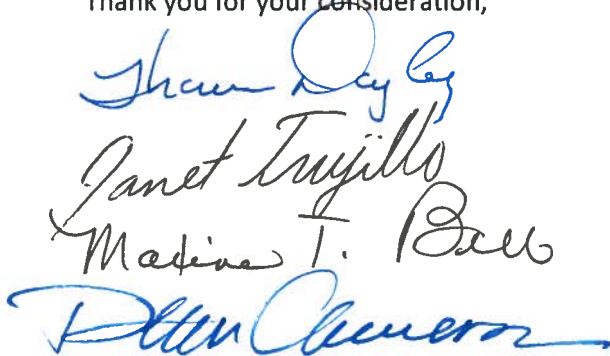 Thank you for your consideration,
Shawn Dayley
Janet Trujillo
Maxine T. Bell
Dean Cameron